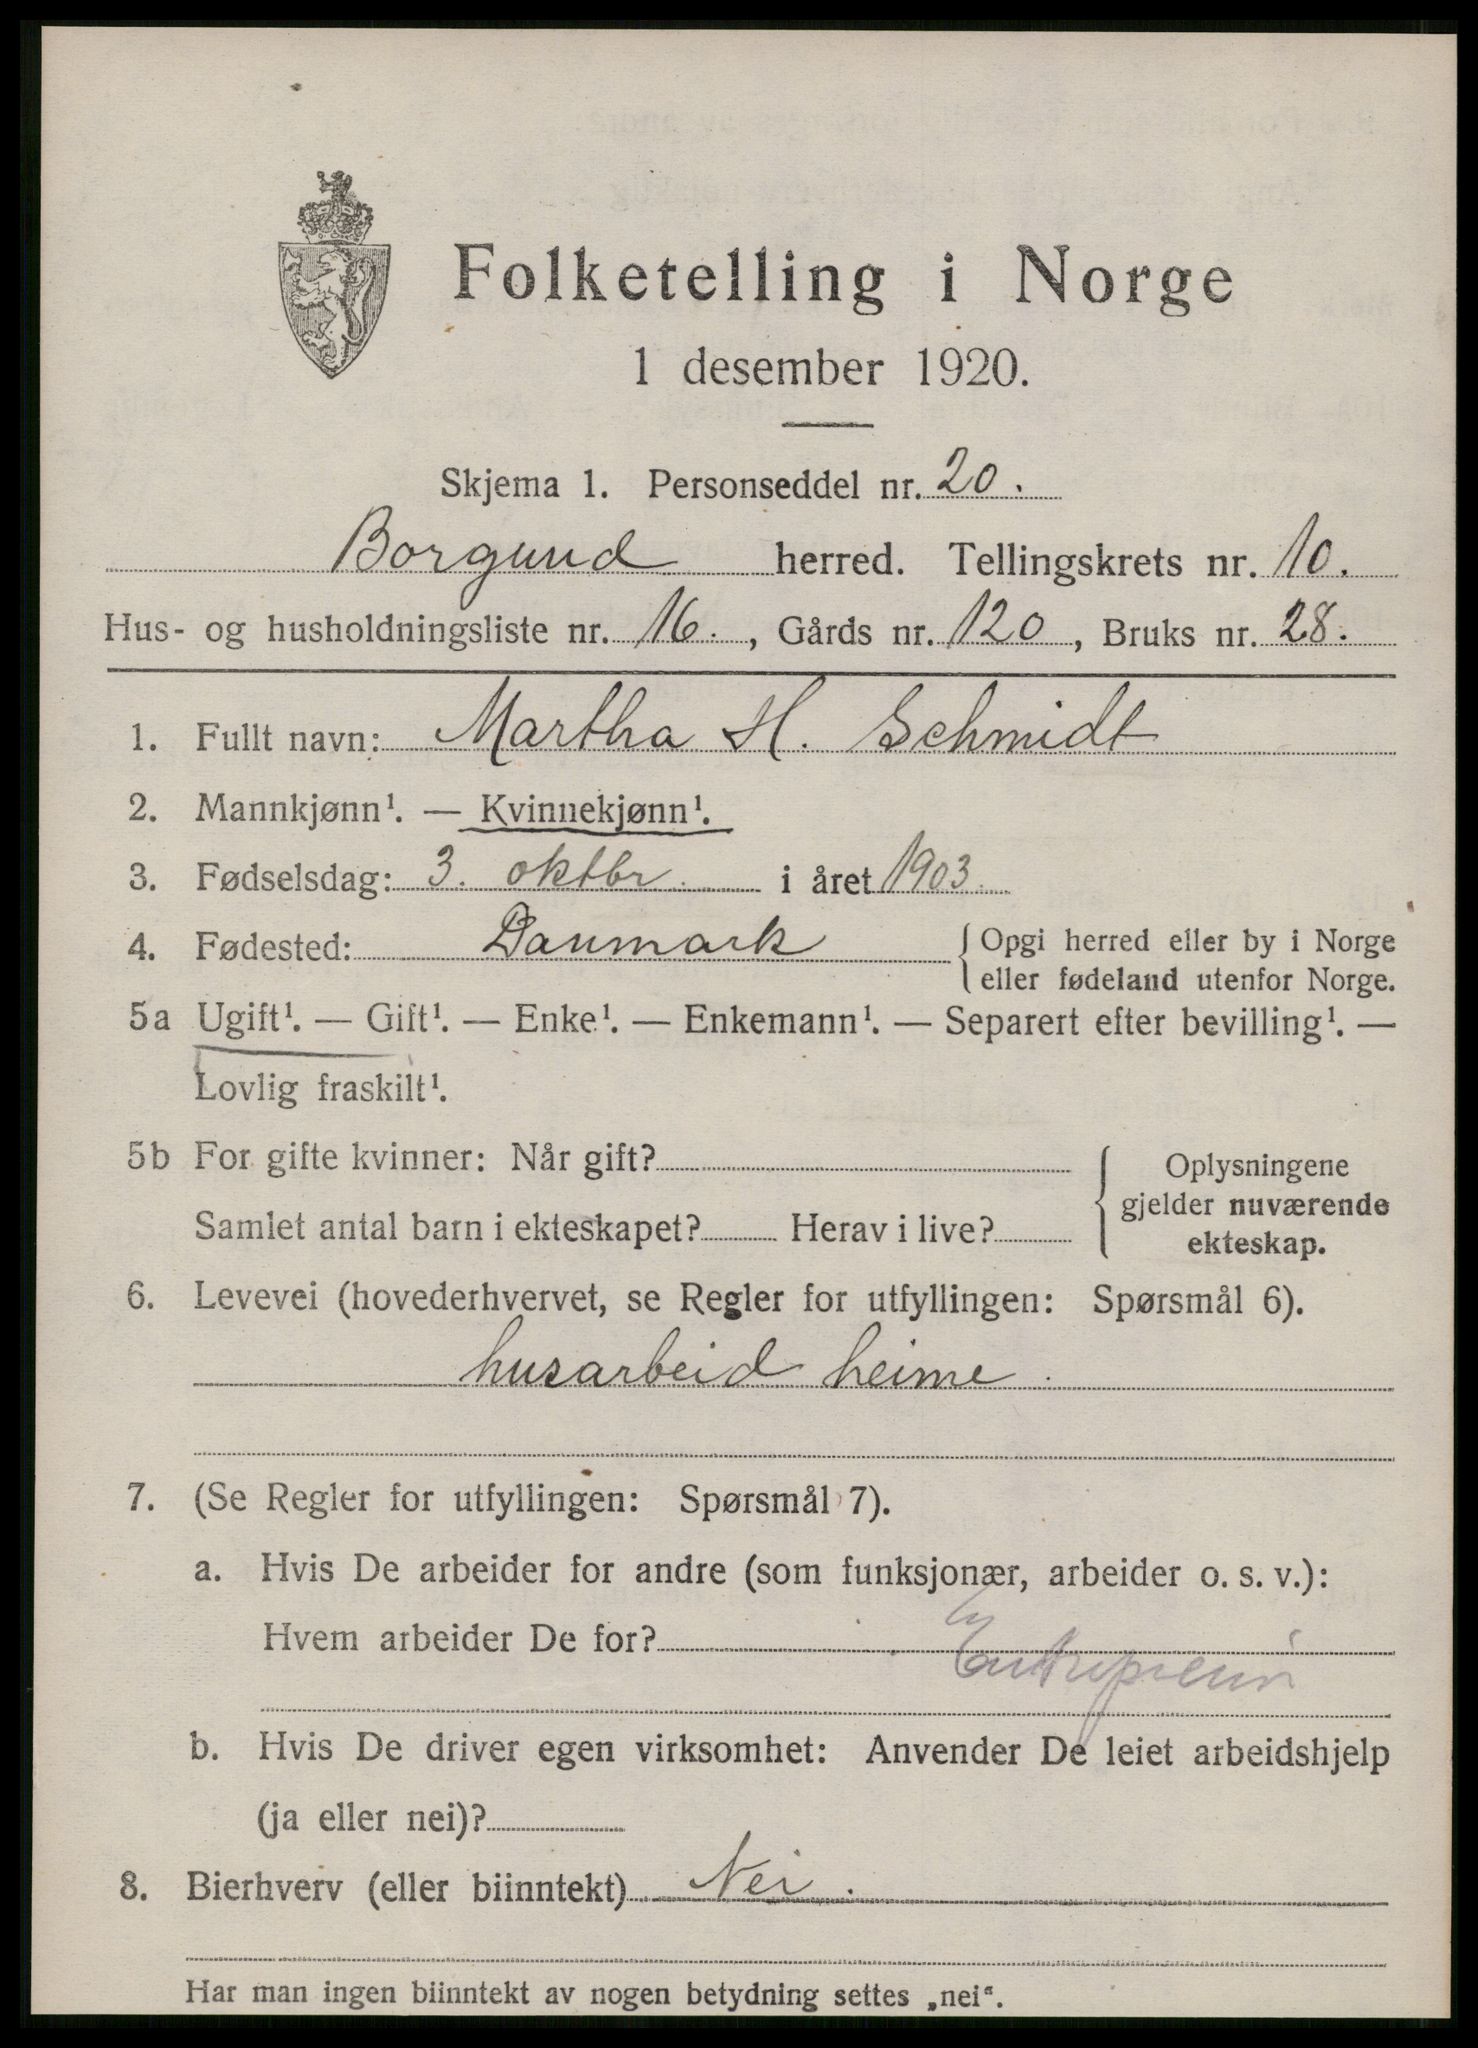 Folketelling i Norge
1 desember 1920.
Skjema 1. Personseddel nr. 20.
Borgund herred. Tellingskrets nr. 10.
Hus- og husholdningsliste nr. 16. , Gårds nr. 120 , Bruks nr. 28.
1. Fullt navn: Martha H. Schmidt
2. Mannkjønn¹. — Kvinnekjønn¹.
3. Fødselsdag: 3. oktbr. i året 1903.
4. Fødested: Danmark { Opgi herred eller by i Norge
eller fødeland utenfor Norge.
5a Ugift¹. — Gift¹. — Enke¹. — Enkemann¹. — Separert efter bevilling¹. —
Lovlig fraskilt¹.
5b For gifte kvinner: Når gift?
Samlet antal barn i ekteskapet? Herav i live?
{ Oplysningene
gjelder nuværende
ekteskap.
6. Levevei (hovederhvervet, se Regler for utfyllingen: Spørsmål 6).
husarbeid heime.
7. (Se Regler for utfyllingen: Spørsmål 7).
a. Hvis De arbeider for andre (som funksjonær, arbeider o. s. v.):
Hvem arbeider De for?
Entreprenør
b. Hvis De driver egen virksomhet: Anvender De leiet arbeidshjelp
(ja eller nei)?
8. Bierhverv (eller biinntekt) Nei.
Har man ingen biinntekt av nogen betydning settes „nei“.